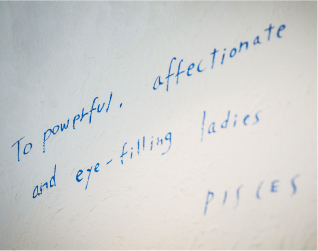 To powerful, affectionate
and eye-filling ladies
PISCES